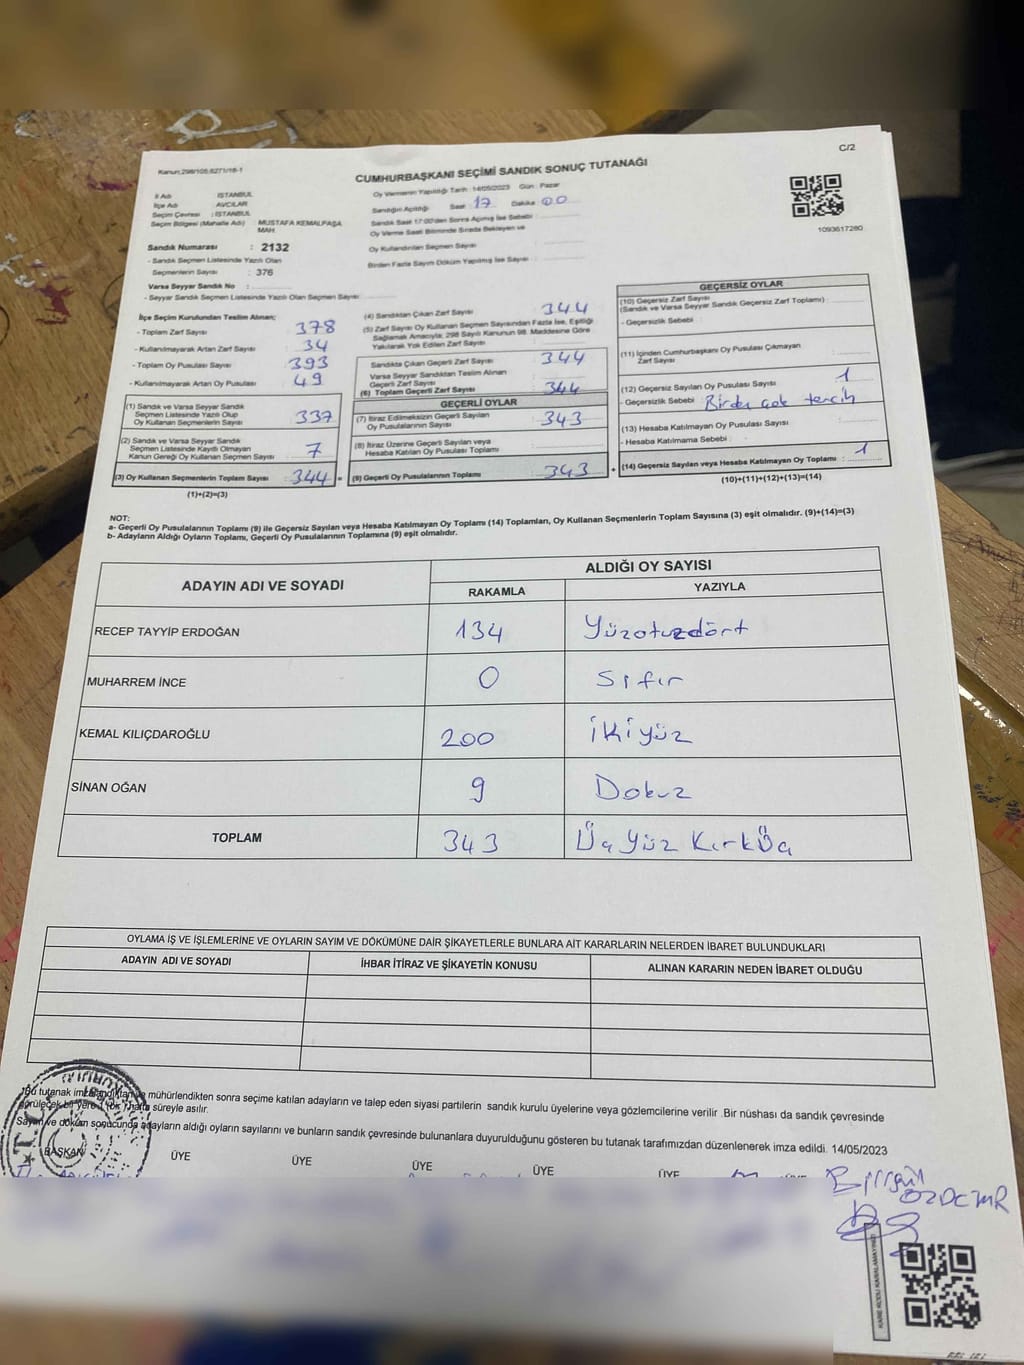 C/2
Kanun:298/105,6271/16-1
CUMHURBAŞKANI SEÇİMİ SANDIK SONUÇ TUTANAĞI
İl Adı : İSTANBUL
İlçe Adı : AVCILAR
Seçim Çevresi : İSTANBUL
Seçim Bölgesi (Mahalle Adı) : MUSTAFA KEMALPAŞA MAH.
Sandık Numarası : 2132
- Sandık Seçmen Listesinde Yazılı Olan
Seçmenlerin Sayısı : 376
Varsa Seyyar Sandık No :
- Seyyar Sandık Seçmen Listesinde Yazılı Olan Seçmen Sayısı:
Oy Vermenin Yapıldığı Tarih : 14/05/2023 Gün : Pazar
Sandığın Açıldığı Saat : 17 Dakika : 00
Sandık Saat 17:00'den Sonra Açılmış İse Sebebi :
Oy Verme Saati Bitiminde Sırada Bekleyen ve
Oy Kullandırılan Seçmen Sayısı :
Birden Fazla Sayım Döküm Yapılmış İse Sayısı :
1093617280
İlçe Seçim Kurulundan Teslim Alınan;
- Toplam Zarf Sayısı : 378
- Kullanılmayarak Artan Zarf Sayısı : 34
- Toplam Oy Pusulası Sayısı : 393
- Kullanılmayarak Artan Oy Pusulası : 49
(1) Sandık ve Varsa Seyyar Sandık
Seçmen Listesinde Yazılı Olup
Oy Kullanan Seçmenlerin Sayısı : 337
(2) Sandık ve Varsa Seyyar Sandık
Seçmen Listesinde Kayıtlı Olmayan
Kanun Gereği Oy Kullanan Seçmen Sayısı : 7
(3) Oy Kullanan Seçmenlerin Toplam Sayısı : 344 =
(1)+(2)=(3)
(4) Sandıktan Çıkan Zarf Sayısı : 344
(5) Zarf Sayısı Oy Kullanan Seçmen Sayısından Fazla İse, Eşitliği
Sağlamak Amacıyla; 298 Sayılı Kanunun 98. Maddesine Göre
Yakılarak Yok Edilen Zarf Sayısı :
Sandıkta Çıkan Geçerli Zarf Sayısı : 344
Varsa Seyyar Sandıktan Teslim Alınan
Geçerli Zarf Sayısı :
(6) Toplam Geçerli Zarf Sayısı : 344
GEÇERLİ OYLAR
(7) İtiraz Edilmeksizin Geçerli Sayılan
Oy Pusulalarının Sayısı : 343
(8) İtiraz Üzerine Geçerli Sayılan veya
Hesaba Katılan Oy Pusulası Toplamı :
(9) Geçerli Oy Pusulalarının Toplamı : 343 +
GEÇERSİZ OYLAR
(10) Geçersiz Zarf Sayısı
(Sandık ve Varsa Seyyar Sandık Geçersiz Zarf Toplamı) :
- Geçersizlik Sebebi :
(11) İçinden Cumhurbaşkanı Oy Pusulası Çıkmayan
Zarf Sayısı :
(12) Geçersiz Sayılan Oy Pusulası Sayısı : 1
- Geçersizlik Sebebi : Birden çok tercih
(13) Hesaba Katılmayan Oy Pusulası Sayısı :
- Hesaba Katılmama Sebebi :
(14) Geçersiz Sayılan veya Hesaba Katılmayan Oy Toplamı : 1
(10)+(11)+(12)+(13)=(14)
NOT:
a- Geçerli Oy Pusulalarının Toplamı (9) ile Geçersiz Sayılan veya Hesaba Katılmayan Oy Toplamı (14) Toplamları, Oy Kullanan Seçmenlerin Toplam Sayısına (3) eşit olmalıdır. (9)+(14)=(3)
b- Adayların Aldığı Oyların Toplamı, Geçerli Oy Pusulalarının Toplamına (9) eşit olmalıdır.
ADAYIN ADI VE SOYADI
ALDIĞI OY SAYISI
RAKAMLA YAZIYLA
RECEP TAYYİP ERDOĞAN 134 Yüzotuzdört
MUHARREM İNCE 0 Sıfır
KEMAL KILIÇDAROĞLU 200 İkiyüz
SİNAN OĞAN 9 Dokuz
TOPLAM 343 Üç Yüz KırkÜç
OYLAMA İŞ VE İŞLEMLERİNE VE OYLARIN SAYIM VE DÖKÜMÜNE DAİR ŞİKAYETLERLE BUNLARA AİT KARARLARIN NELERDEN İBARET BULUNDUKLARI
ADAYIN ADI VE SOYADI İHBAR İTİRAZ VE ŞİKAYETİN KONUSU ALINAN KARARIN NEDEN İBARET OLDUĞU
"Bu tutanak imzalandıktan ve mühürlendikten sonra seçime katılan adayların ve talep eden siyasi partilerin sandık kurulu üyelerine veya gözlemcilerine verilir .Bir nüshası da sandık çevresinde
görülecek bir yere 1 (bir) hafta süreyle asılır.
Sayım ve döküm sonucunda adayların aldığı oyların sayılarını ve bunların sandık çevresinde bulunanlara duyurulduğunu gösteren bu tutanak tarafımızdan düzenlenerek imza edildi. 14/05/2023
BAŞKAN ÜYE ÜYE ÜYE ÜYE ÜYE ÜYE
T.C.
Birgül
ÖZDEMİR
KARE KODU KARALAMAYINIZ